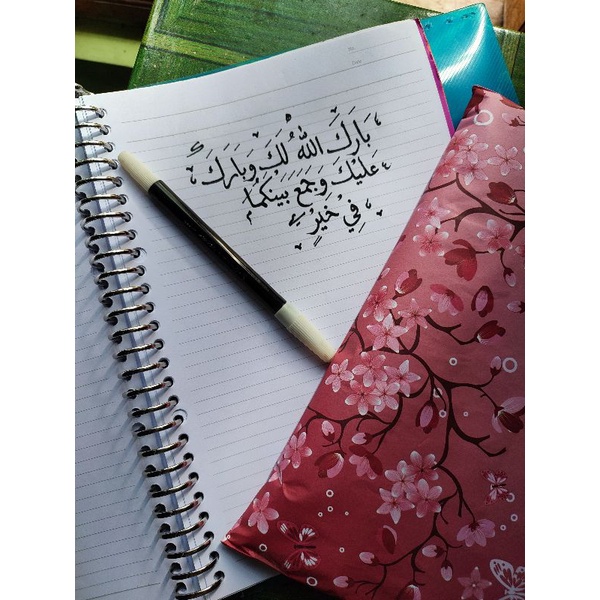 بَارَكَ اللّٰهُ لَكَ وَبَارَكَ
عَلَيْكَ وَجَمَعَ بَيْنَكُمَا
فِيْ خَيْرٍ